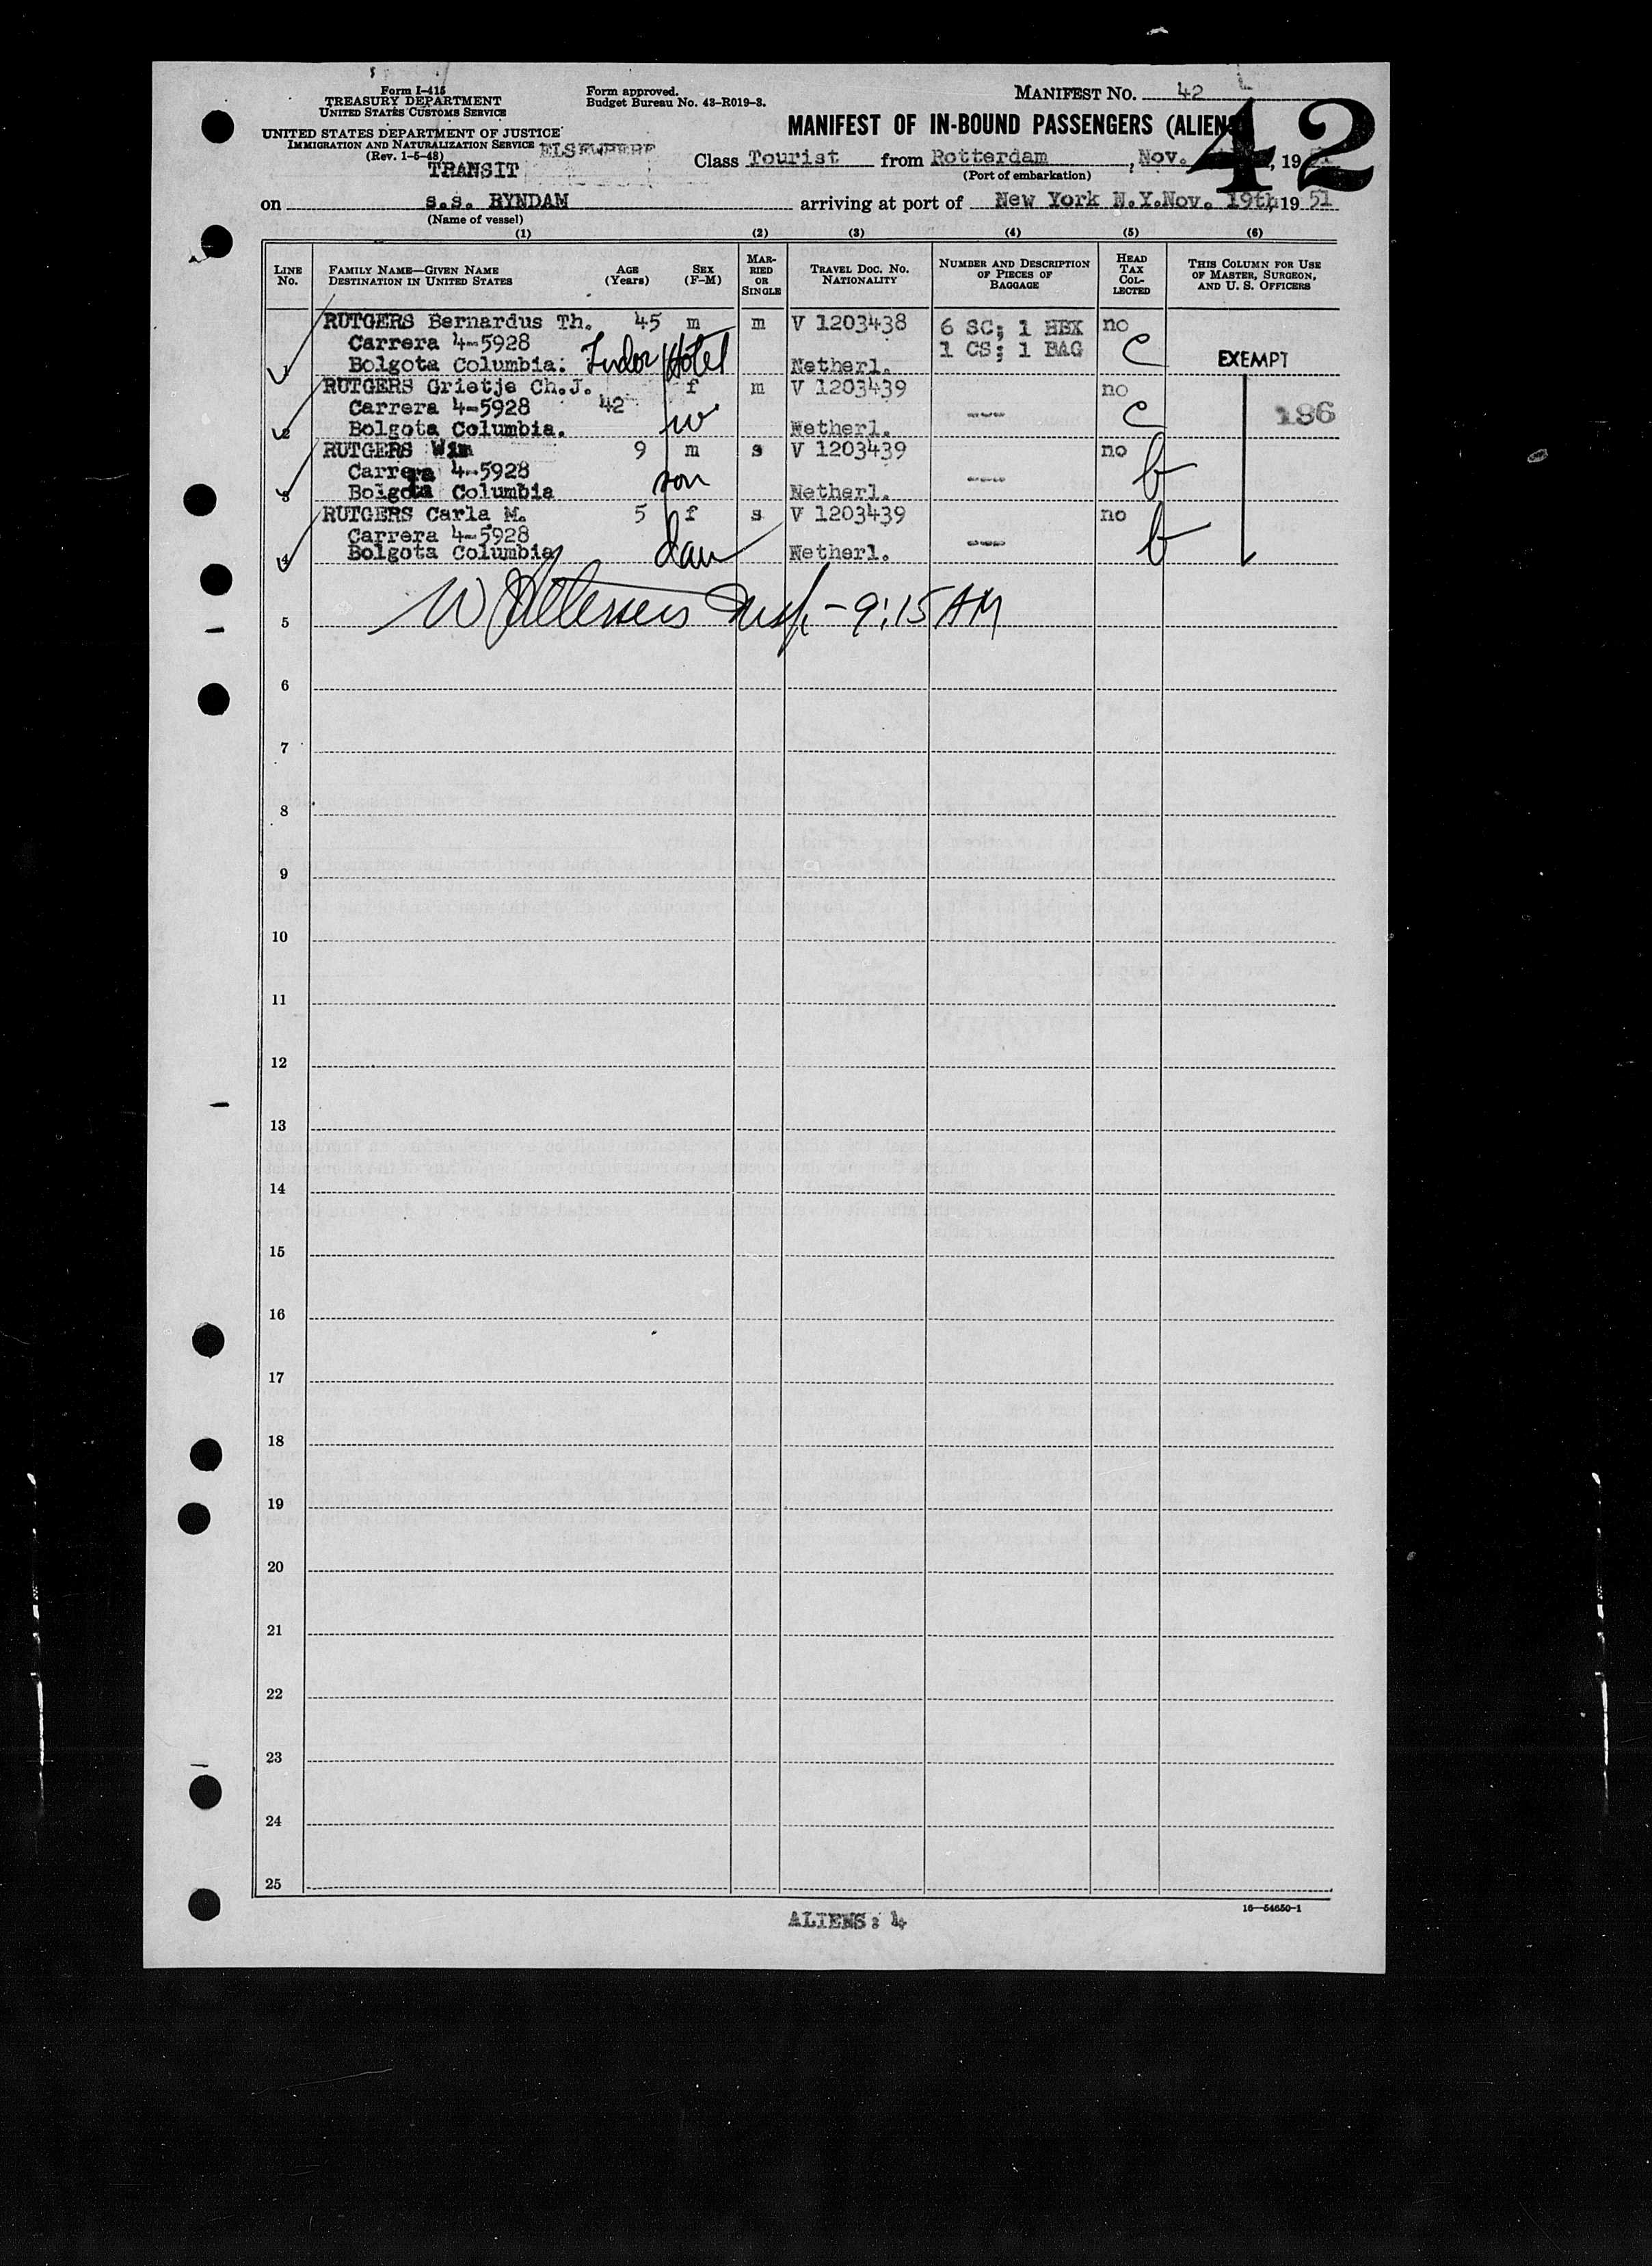 Form I-415
TREASURY DEPARTMENT
UNITED STATES CUSTOMS SERVICE
UNITED STATES DEPARTMENT OF JUSTICE
IMMIGRATION AND NATURALIZATION SERVICE
(Rev. 1-5-48)
ELSEWHERE
TRANSIT
Form approved.
Budget Bureau No. 43-R019-3.
MANIFEST NO. 42
42
MANIFEST OF IN-BOUND PASSENGERS (ALIEN
Class Tourist from Rotterdam, Nov. , 1951
(Port of embarkation)
on s.s. RYNDAM arriving at port of New York N.Y. Nov. 19th, 1951
(Name of vessel)
(1) (2) (3) (4) (5) (6)
LINE No. FAMILY NAME—GIVEN NAME DESTINATION IN UNITED STATES AGE (Years) SEX (F-M) MARRIED OR SINGLE TRAVEL DOC. NO. NATIONALITY NUMBER AND DESCRIPTION OF PIECES OF BAGGAGE HEAD TAX COLLECTED THIS COLUMN FOR USE OF MASTER, SURGEON, AND U. S. OFFICERS
RUTGERS Bernardus Th. 45 m m V 1203438 6 SC; 1 HBX no
Carrera 4-5928 1 CS; 1 BAG C
1 Bolgota Columbia. Tudor Hotel Netherl. EXEMPT
RUTGERS Grietje Ch.J. f m V 1203439 no
Carrera 4-5928 42 --- C 186
2 Bolgota Columbia. w Netherl.
RUTGERS Wim 9 m s V 1203439 no
Carrera 4-5928 --- b
3 Bolgota Columbia son Netherl.
RUTGERS Carla M. 5 f s V 1203439 no
Carrera 4-5928 --- b
4 Bolgota Columbia dau Netherl.
5 Insp. - 9:15 AM
6
7
8
9
10
11
12
13
14
15
16
17
18
19
20
21
22
23
24
25
ALIENS: 4
16—54650-1